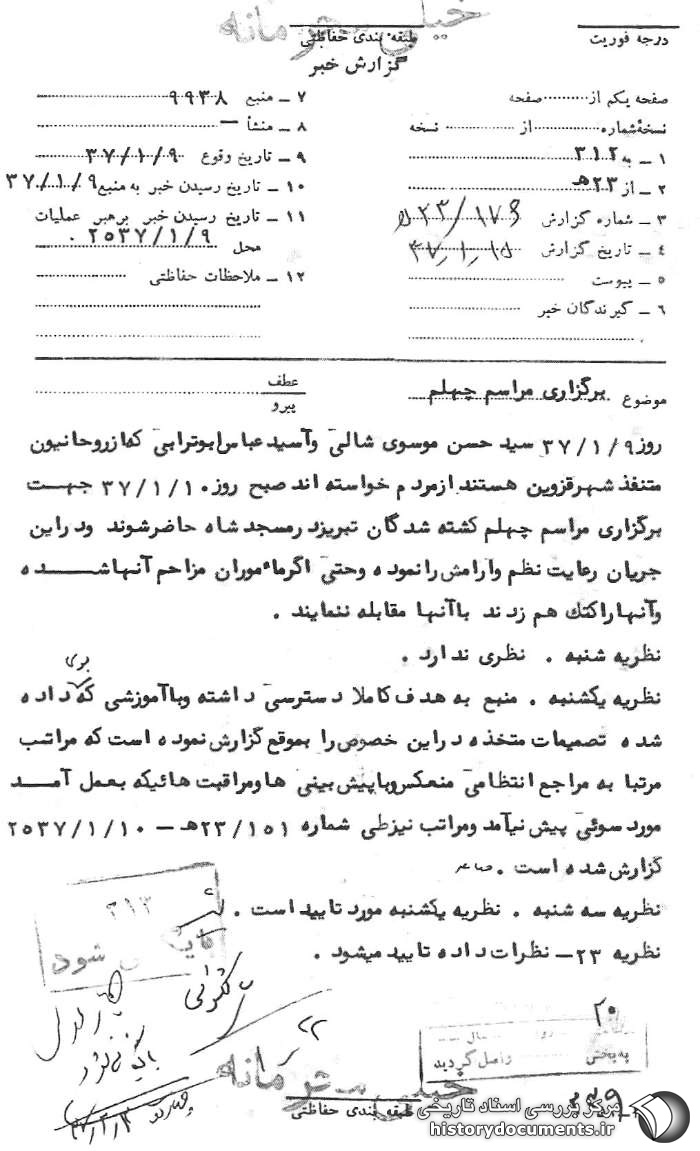 خیلی محرمانه
درجه فوریت
طبقه بندی حفاظتی
گزارش خبر
صفحه یکم از ............ صفحه
نسخهٔ شماره ............ از ............ نسخه
۱ ــ به ۳۱۲
۲ ــ از ۲۳هـ
۳ ــ شماره گزارش
۴ ــ تاریخ گزارش
۵ ــ پیوست
۶ ــ گیرندگان خبر
۷ ــ منبع ۹۹۳۸
۸ ــ منشأ ــ
۹ ــ تاریخ وقوع ۳۷/۱/۹
۱۰ ــ تاریخ رسیدن خبر به منبع ۳۷/۱/۹
۱۱ ــ تاریخ رسیدن خبر برهبر عملیات
محل ۲۵۳۷/۱/۹
۱۲ ــ ملاحظات حفاظتی
موضوع برگزاری مراسم چهلم
عطف
پیرو
روز ۳۷/۱/۹ سید حسن موسوی شالی و آسید عباس ابوترابی که از روحانیون
متنفذ شهر قزوین هستند از مردم خواسته اند صبح روز ۳۷/۱/۱۰ جهت
برگزاری مراسم چهلم کشته شدگان تبریز در مسجد شاه حاضر شوند و در این
جریان رعایت نظم و آرامش را نموده و حتی اگر مأموران مزاحم آنها شده
و آنها را کتک هم زدند با آنها مقابله ننمایند .
نظریه شنبه . نظری ندارد .
نظریه یکشنبه . منبع به هدف کاملا دسترسی داشته و با آموزشی که بوی داده
شده تصمیمات متخذه در این خصوص را بموقع گزارش نموده است که مراتب
مرتبا به مراجع انتظامی منعکس و با پیش بینی ها و مراقبت هائیکه بعمل آمد
مورد سوئی پیش نیامد و مراتب نیز طی شماره ۲۳/۱۵۱هـ ــ ۲۵۳۷/۱/۱۰
گزارش شده است .
نظریه سه شنبه . نظریه یکشنبه مورد تایید است .
نظریه ۲۳ــ نظرات داده تایید میشود .
۳۱۲
بایگانی شود
۲۰
به بخش
واصل گردید
خیلی محرمانه
طبقه بندی حفاظتی
مرکز بررسی اسناد تاریخی
historydocuments.ir